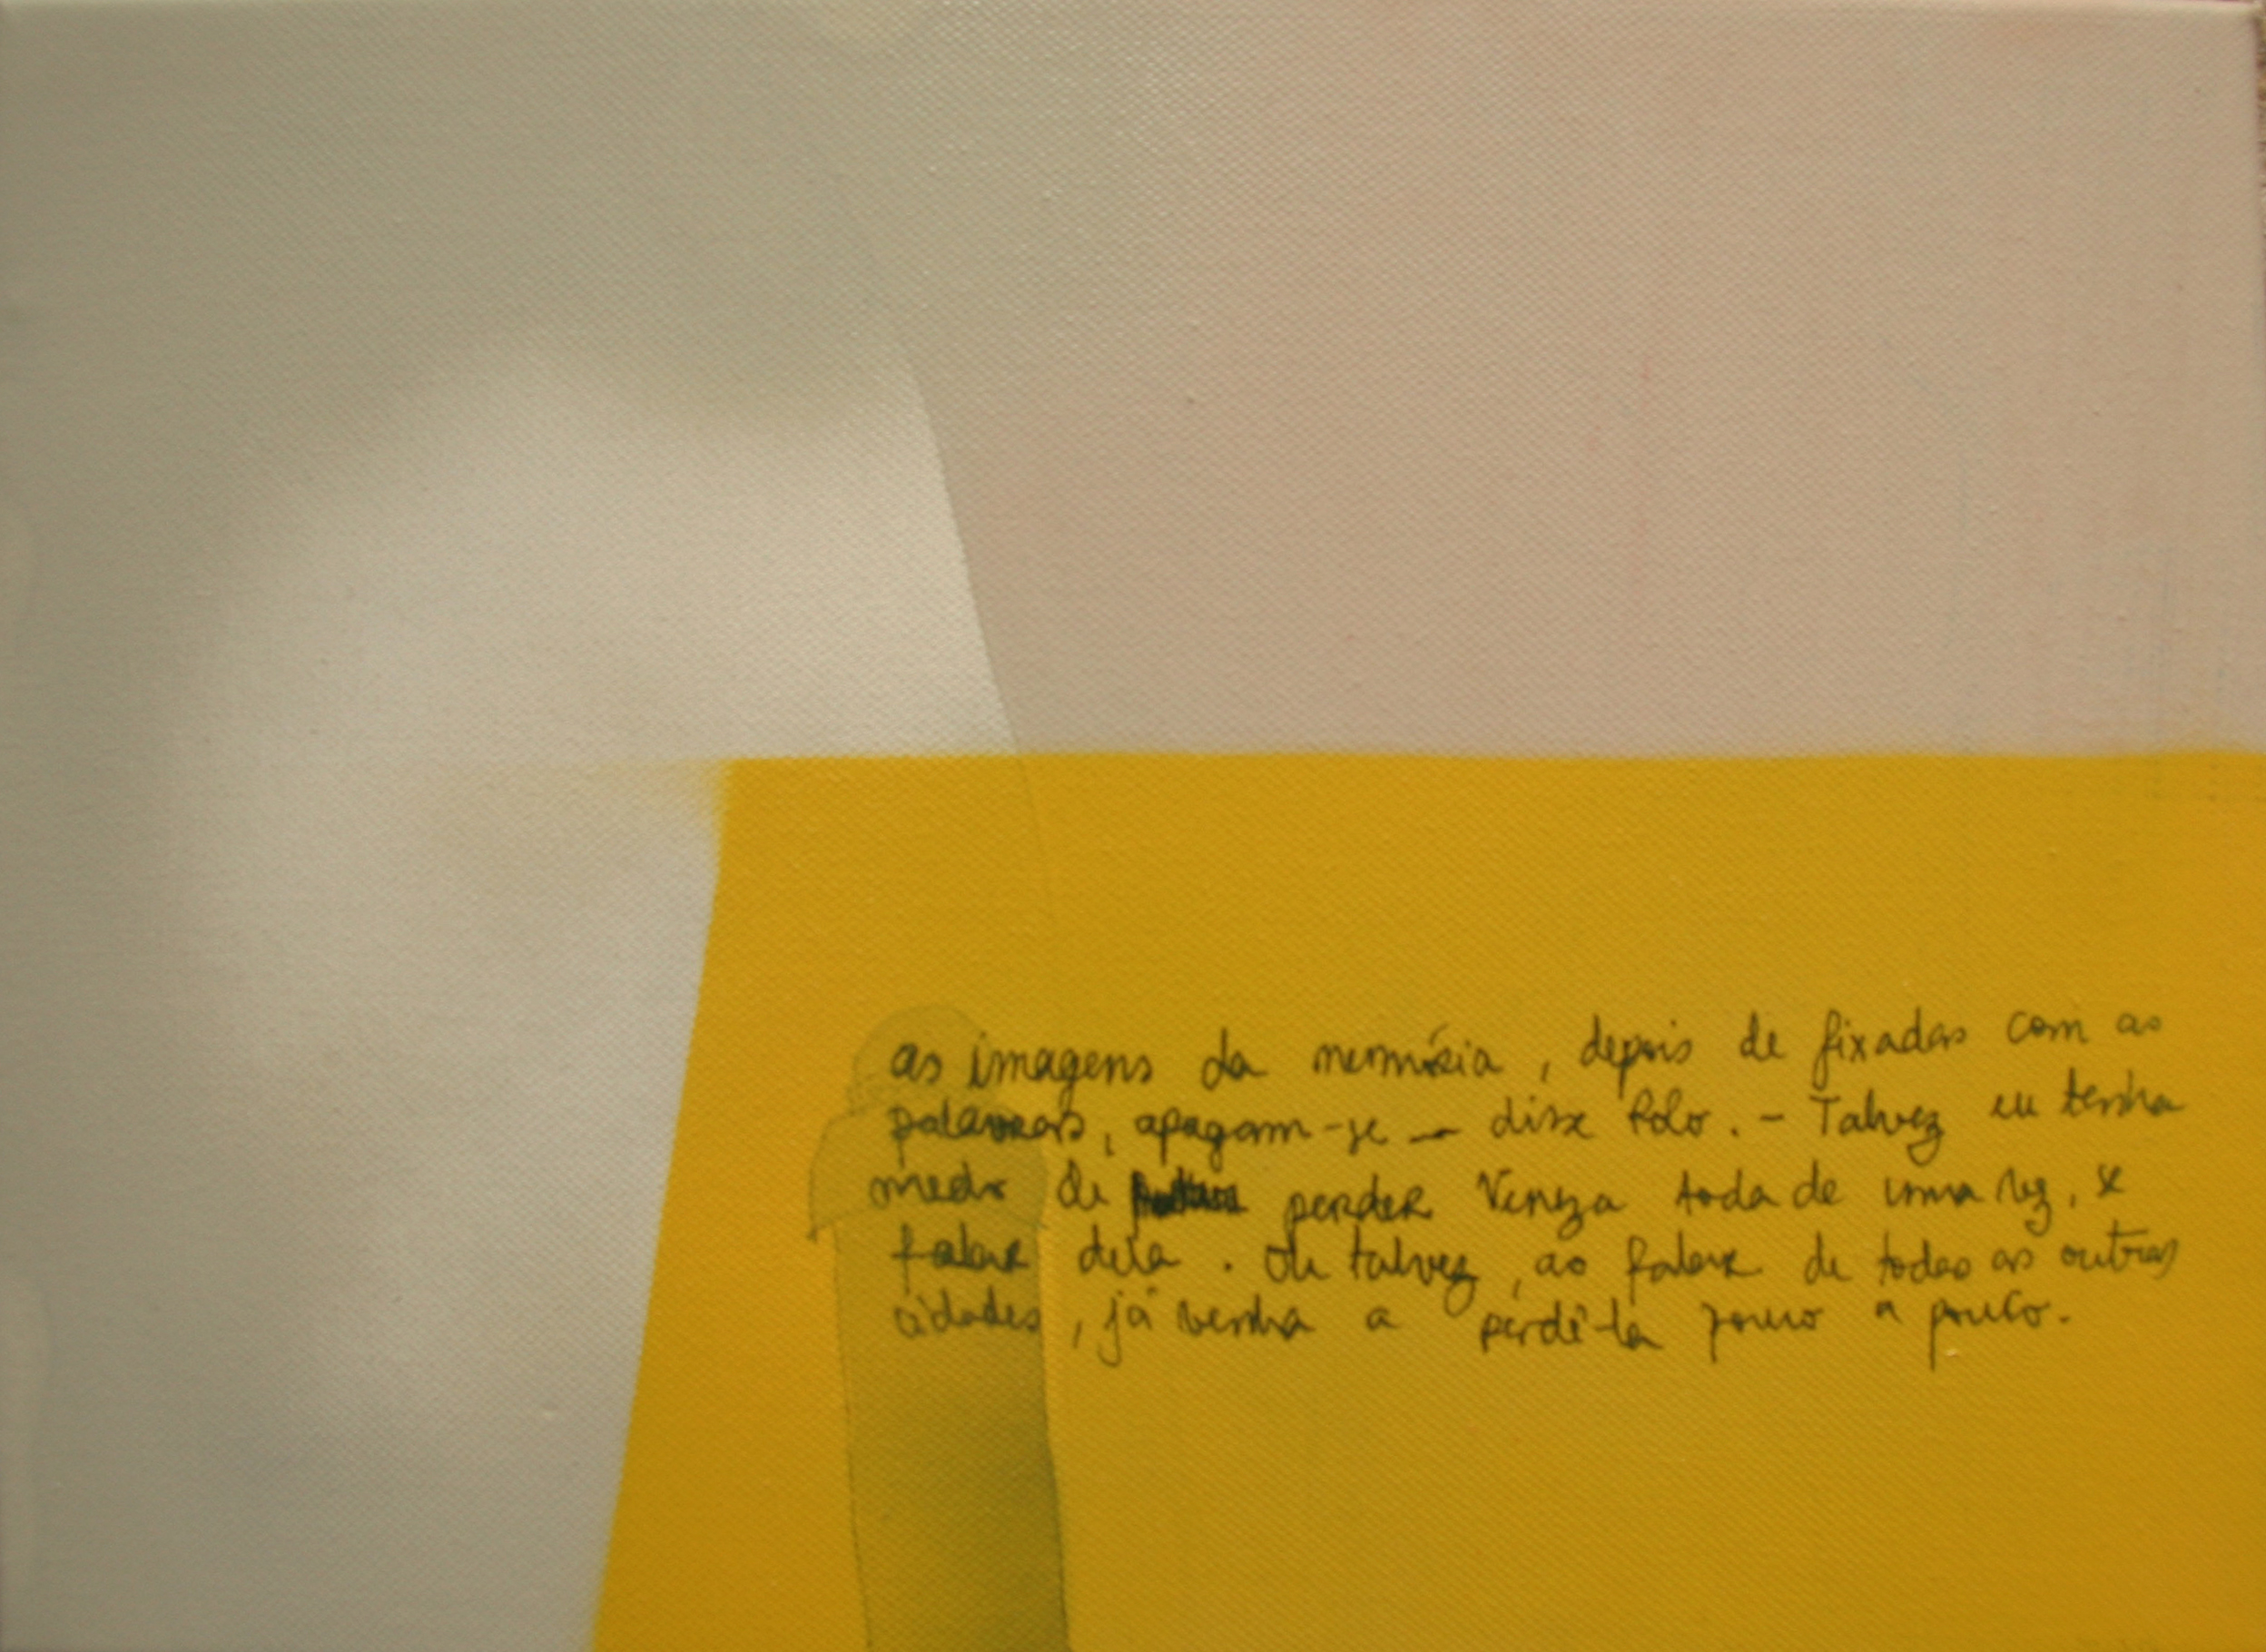 as imagens da memória, depois de fixadas com as
palavras, apagam-se — disse Polo. - Talvez eu tenha
medo de perder Veneza toda de uma vez, se
falar dela. Ou talvez, ao falar de todas as outras
cidades, já venha a perdê-la pouco a pouco.